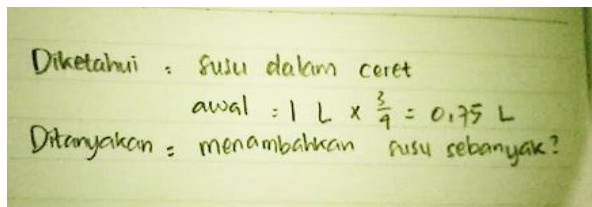 Diketahui : susu dalam ceret
awal : 1 L x 3/4 = 0,75 L
Ditanyakan = menambahkan susu sebanyak?